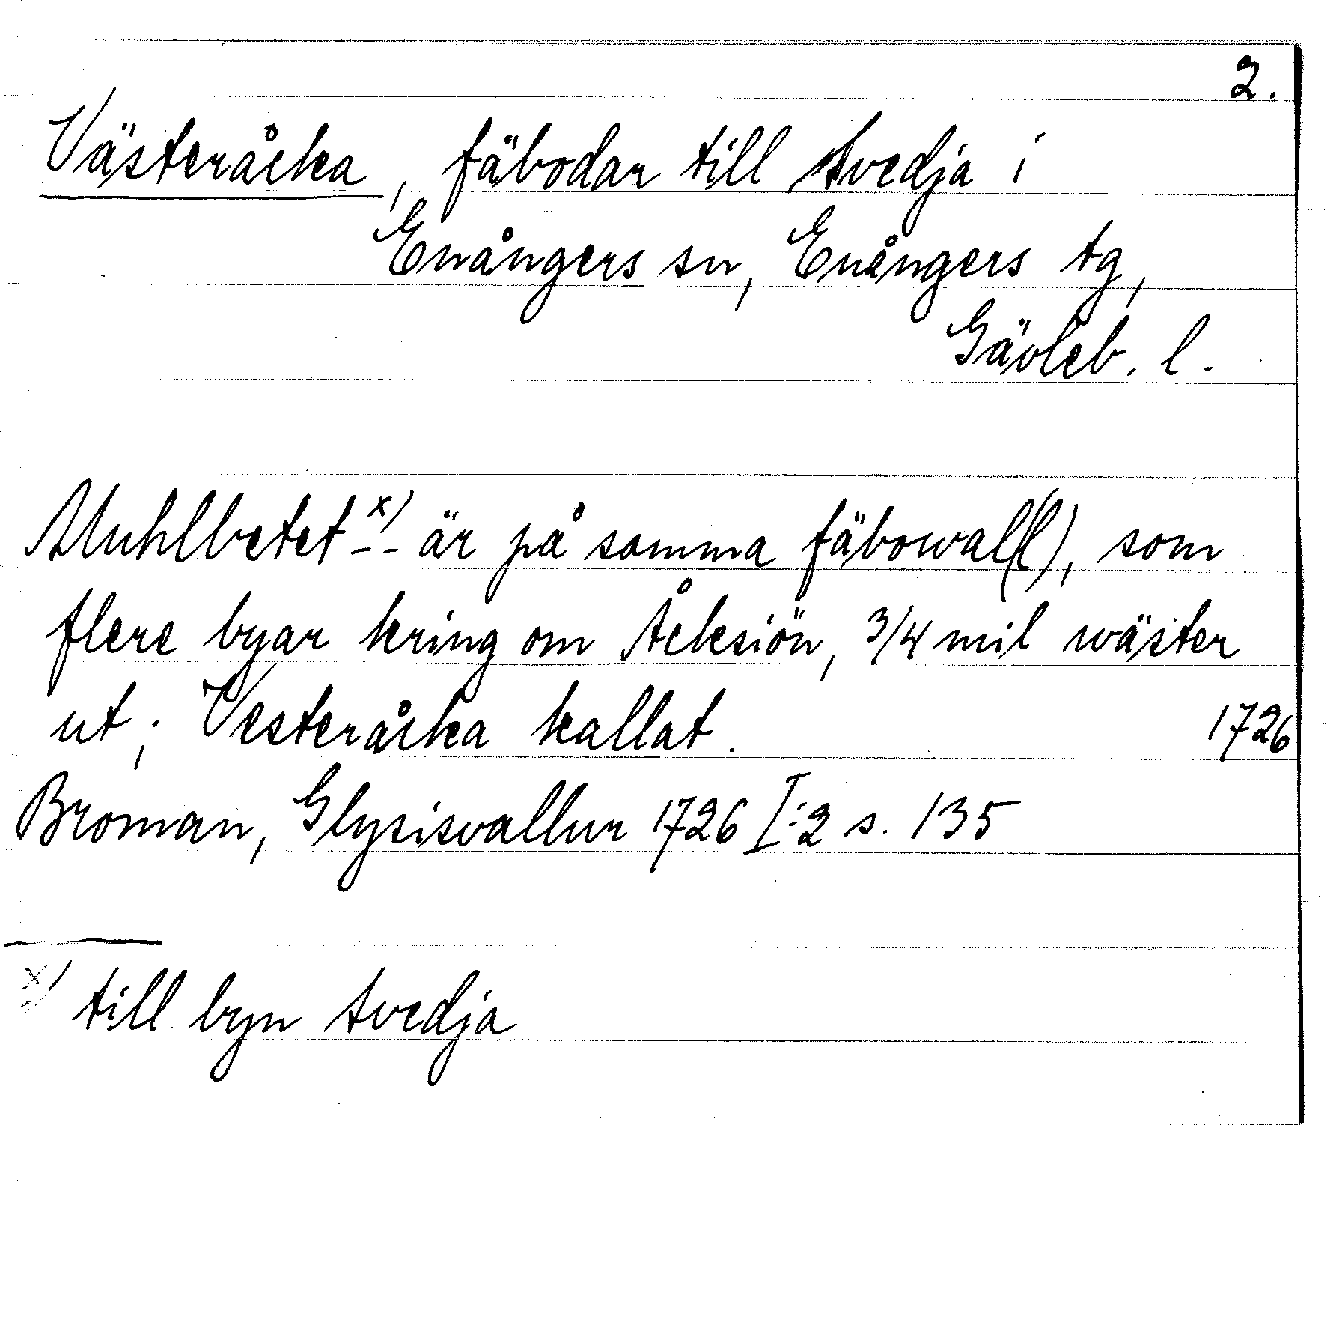 2.
Västeråcka, fäbodar till Svedja i
Enångers sn, Enångers tg,
Gävleb. l.
Muhlbetet x) – – är på samma fäbowal(l), som
flere byar kring om Åcksiön, 3/4 mil wäster
ut; Vesteråcka kallat. 1726
Broman, Glysisvallur 1726 I:2 s. 135
x) till byn Svedja